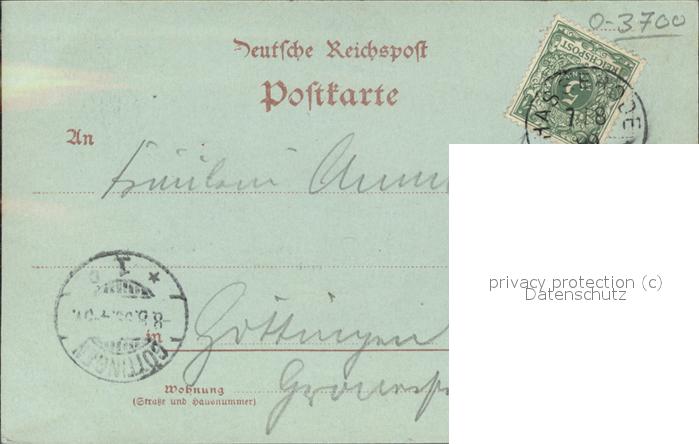 0-3700
Deutsche Reichspost
Postkarte
REICHSPOST
5
HASSERODE
An
Fräulein
privacy protection (c)
Datenschutz
GÖTTINGEN
in Göttingen
Wohnung
(Straße und Hausnummer)